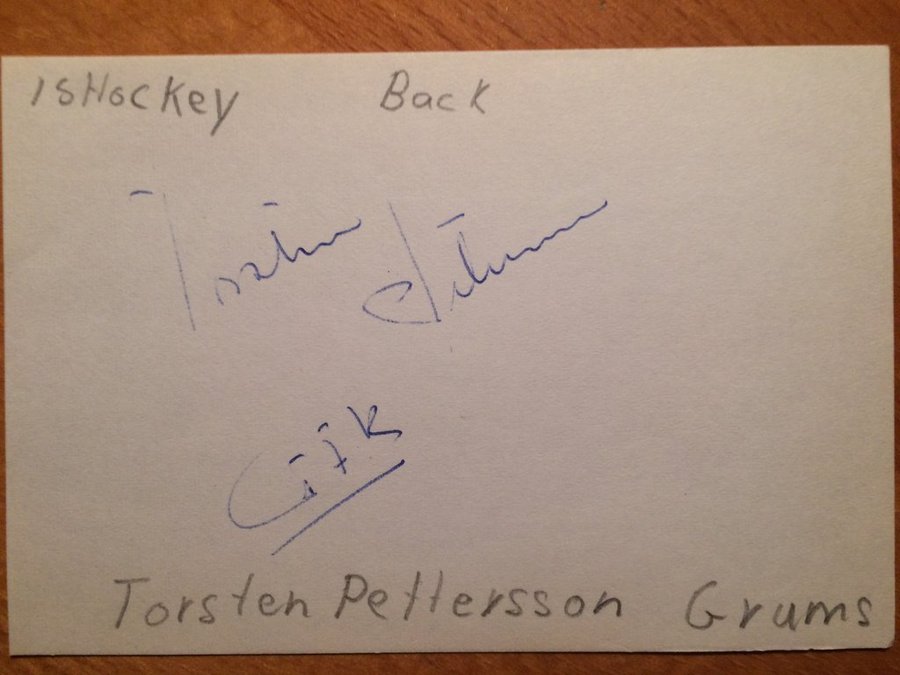 Ishockey Back
Torsten Pettersson
GIFK
Torsten Pettersson Grums